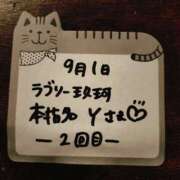 9月1日
ラブリー玖珂
本指名 Yさま♡
—2回目—